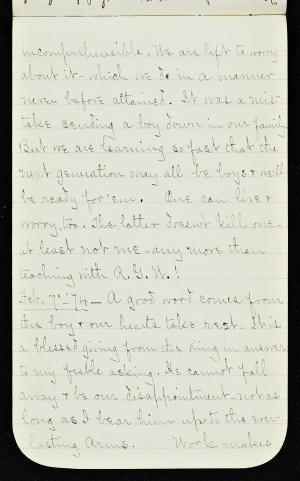 incomprehensible. We are left to worry
about it - which we do in a manner
never before attained. It was a mis-
take sending a boy down in our family.
But we are learning so fast that the
next generation may all be boys & we'll
be ready for 'em. One can live &
worry, too. The latter doesn't kill one -
at least not me - any more than
teaching with R. G. W.!
Feb. 7th 74 - A good word comes from
the boy & our hearts take rest. It is
a blessed giving from the King in answer
to my feeble asking. He cannot fall
away & be our disappointment - not as
long as I bear him up to the ever-
lasting Arms. Work makes